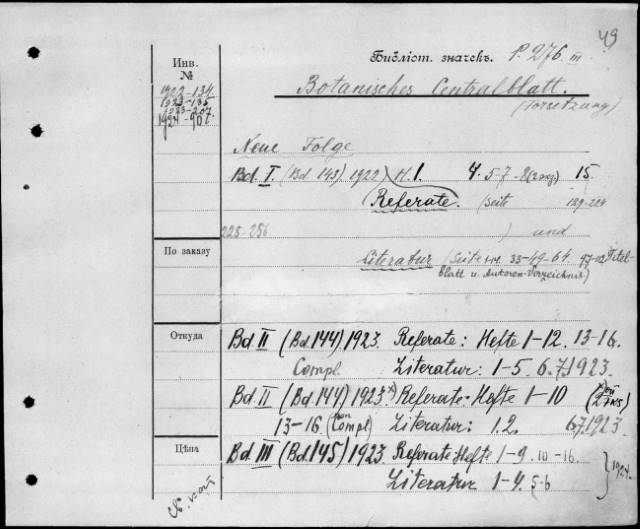 49
Библіот. значекъ. P. 276 III
Инв. №
1922-134
1923-136
1923-207
1924-907.
Botanisches Centralblatt.
(Forsetzung)
Neue Folge
Bd. I. (Bd 143) 1922) H. 1. 4. 5-7-8 (2 экз) 15.
Referate. (Seite 129-224
225-256 ) und
По заказу
Literatur (Seite 33-49-64 Titel-
blatt u. Autoren-Verzeichnis)
Откуда
Bd II (Bd 144) 1923. Referate: Hefte 1-12. 13-16.
Compl. Literatur: 1-5. 6.7. 1923.
Bd II (Bd 144) 1923 x) Referate: Hefte 1-10
13-16 (Compl) Literatur: 1.2. 6.7. 1923.
Цѣна
Bd III (Bd 145) 1923 Referate Hefte 1-9. 10-16.
Literatur 1-4. 5-6 } 1924.